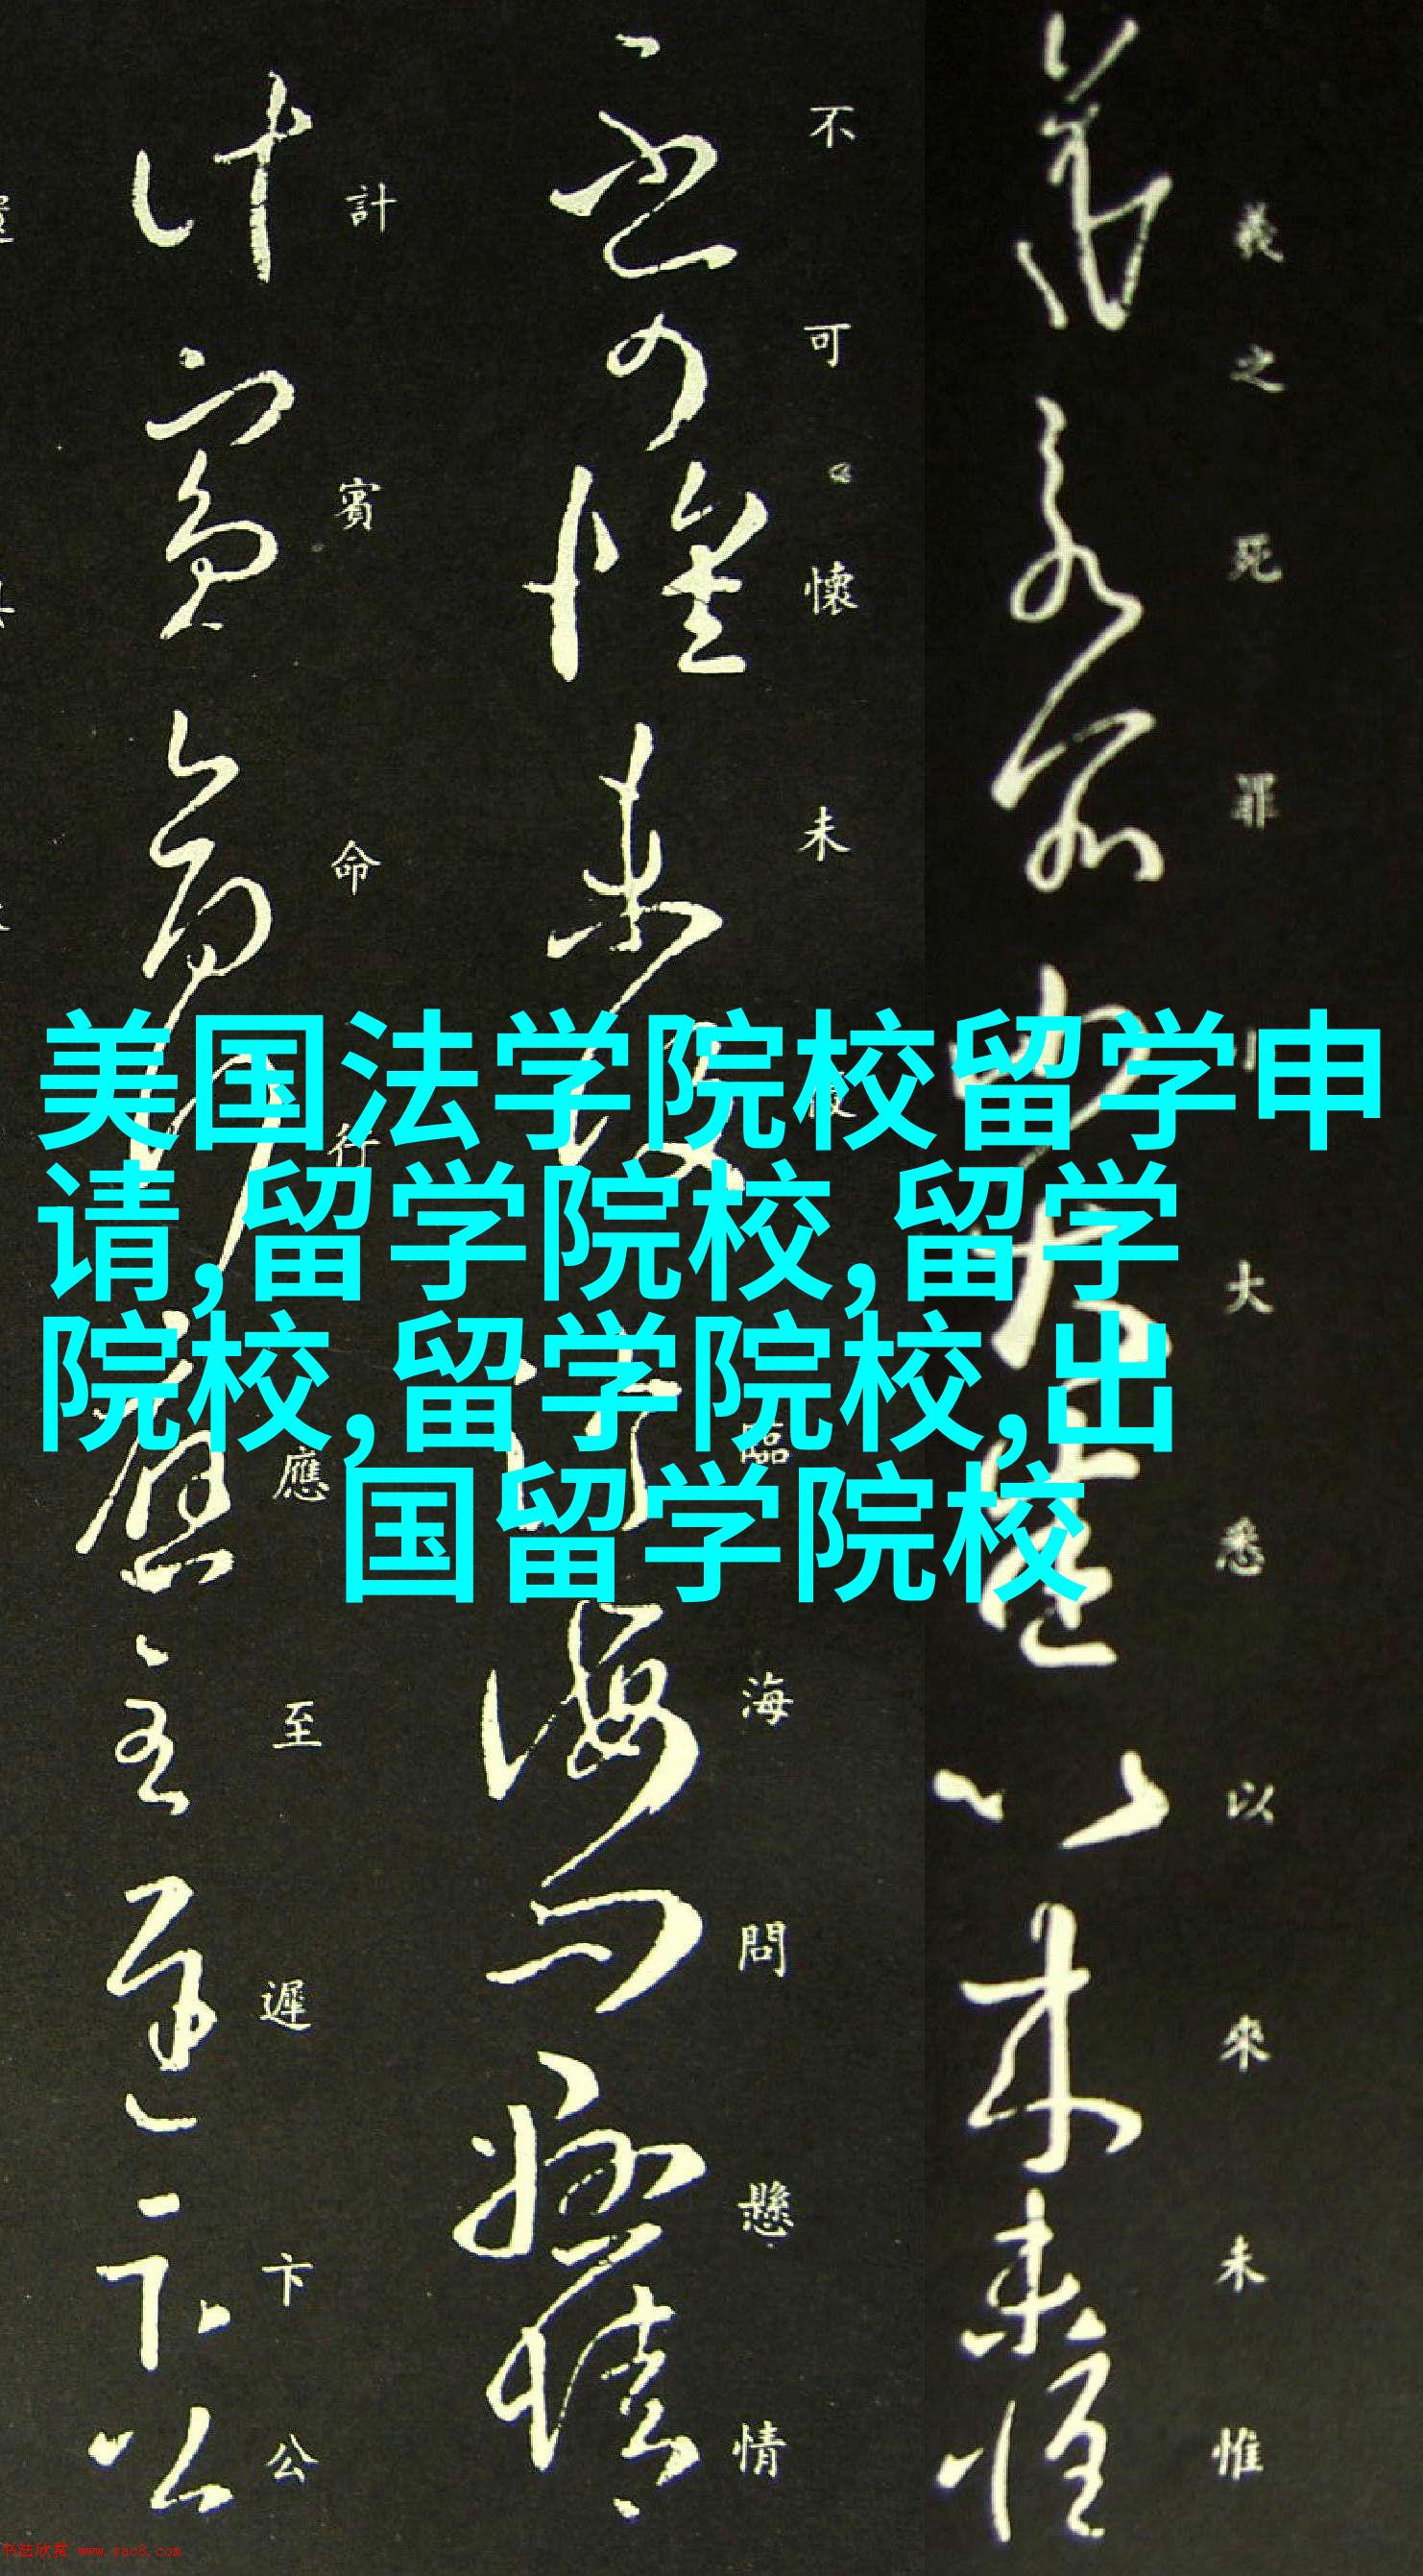 美国法学院校留学申
请,留学院校,留学
院校,留学院校,出
国留学院校
羲之死罪
大悉以來未惟
不可懷未
臨海問懸情
計賓命行應至遲卞公
书法欣赏 www.yac8.com